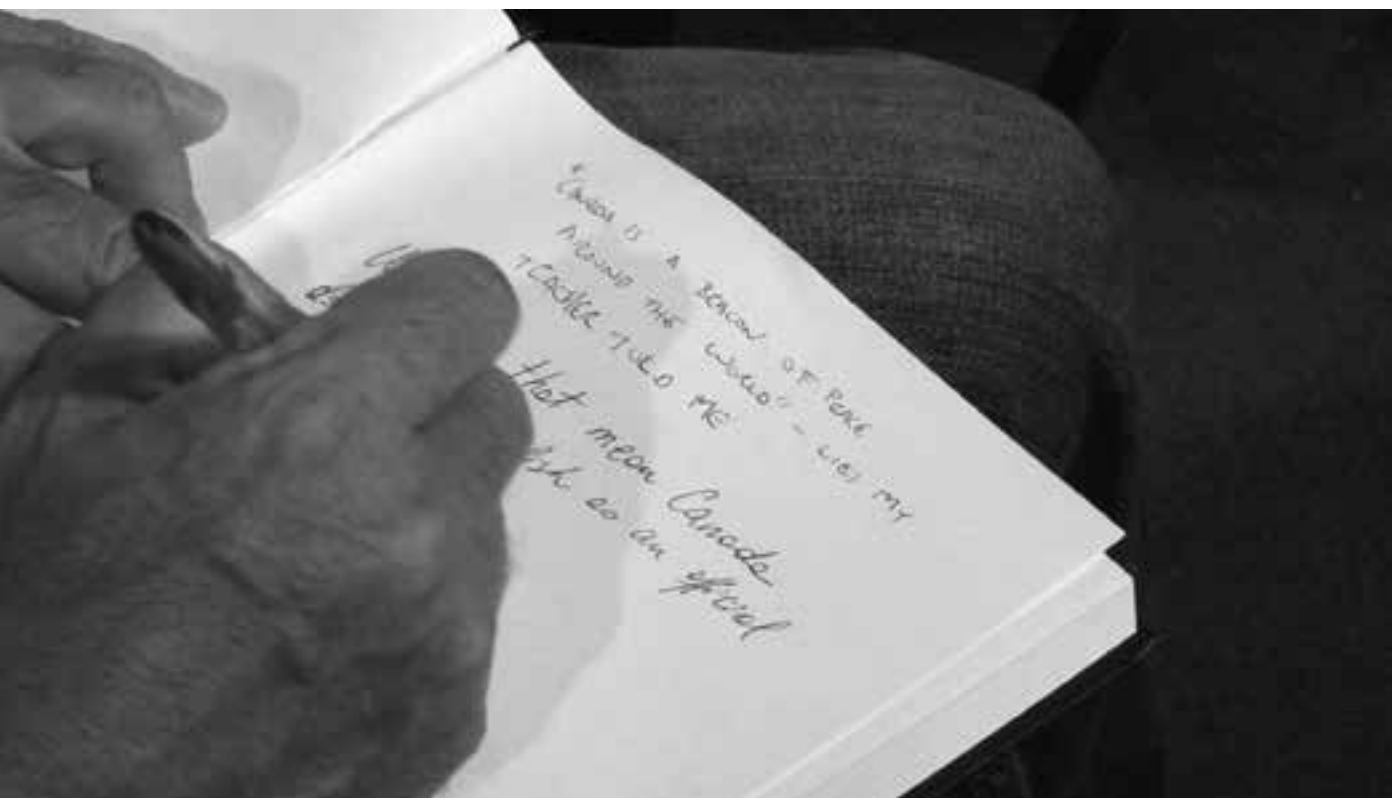 "CANADA IS A BEACON OF PEACE
AROUND THE WORLD" - LIES MY
TEACHER TOLD ME
that mean Canada
as an official